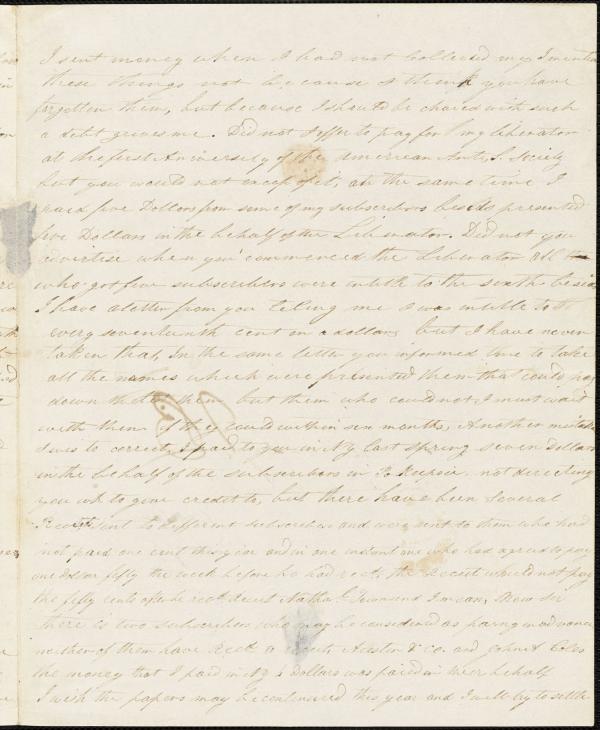 I sent money when I had not Collected my I mention
these things not because I think you have
forgotten them, but because I should be charged with such
a debt grieves me. Did not I offer to pay for my liberator
at the first Aniversity of the American Anti, S. Society
but you would not except of it, at the same time I
paid five Dollars from some of my subscribers besides presented
five Dollars in the behalf of the Liberator. Did not you
advertise when you commenced the Liberator all
who got five subscribers were intitle to the sixth besides
I have a letter from you teling me I was intitle to
every seventeenth cent on a dollar, but I have never
taken that, In the same letter you informed me to take
all the names which were presented them that could pay
down but them who could not, I must wait
with them if they could within six months, Another mistake
I wis to correct, I paid to you in N.y last spring seven dollars
in the behalf of the subscribers in Po Keepsie. not directing
you who to give credit to, but there have been Several
Receipts sent to different subscribers and were sent to them who had
not paid one cent this year and in one instant one who has agreed to pay
one dollar fifty the week before he had recd. the Receit would not pay
the fifty cents after he recd. receit Nathal. Townsend I mean, Now Sir
there is two subscribers who may be considered as paying in advance
neither of them have Recd. a receit Austin & co. and John A Coles
the money that I paid in N.y dollars was paid in their behalf
I wish the papers may be continued this year and I will try to settle